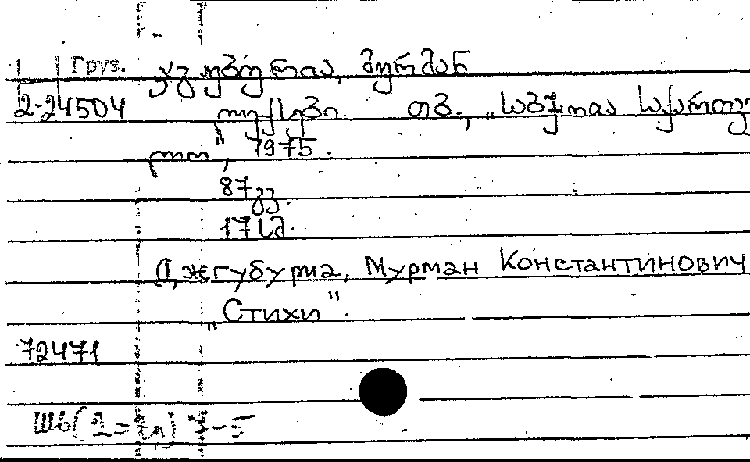 Груз. ჯგუბურია, მურმან
2-24504 ლექსები. თბ., „საბჭოთა საქართვე
ლო", 1975.
87 გვ.
17 სმ.
Джгубурия, Мурман Константинович
„Стихи".
72471